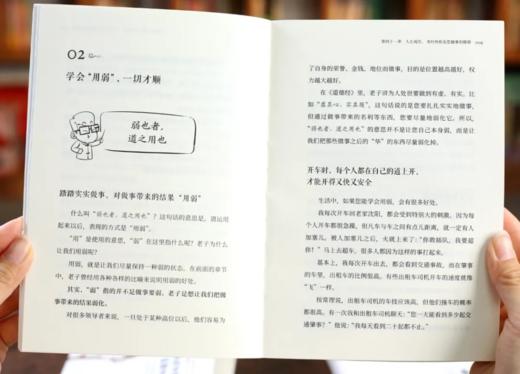 02
学会“用弱”，一切才顺
弱也者，
道之用也
踏踏实实做事，对做事带来的结果“用弱”
什么叫“弱也者，道之用也”？这句话的意思是，道运用
起来以后，表现的方式是“用弱”。
“用”是使用的意思，“弱”在这里指什么呢？老子为什么
让我们用弱呢？
用弱，就是让我们尽量保持一种弱的状态，在前面的章节
中，老子曾经用各种各样的比喻来说明用弱的好处。
其实，“弱”指的并不是做事要弱，老子是想让我们把做
事带来的结果弱化。
对很多领导者来说，一旦处于某种高位以后，他们容易为
第四十一章
了自身的荣誉、金钱、地位而做事，目的是位置越高越好，权
力越大越好。
在《道德经》里，老子讲为人处世要做到有虚，有实，比
如“虚其心，实其腹”，这句话说的是您要扎扎实实地做事，
但通过做事带来的名利等东西，您要尽量地弱化它。所以，
“弱也者，道之用也”的意思并不是让您自己本身弱，而是让
我们把那些做事之后的“华”的东西尽量弱化掉。
开车时，每个人都在自己的道上开，
才能开得又快又安全
生活中，如果您能学会用弱，会有很多好处。
我每次开车回老家沈阳，都会受到特别大的刺激，因为每
个人开车都很急躁，但凡车与车之间有点儿距离，就一定有人
加塞儿，被人加塞之后，火就上来了：“你敢插队，我要超
你！”马上去超车，很多人都因为这样的事打起来。
基本上，我每次开车出去，都会看到交通事故，而在肇事
的车里，出租车的比例很高，有些出租车司机开车的速度就像
“飞”一样。
按常理说，出租车司机的车技应该高，但他们撞车的概率
都很高，有一次我和出租车司机聊天：“您一天能看到多少起交
通肇事？”他说：“我每天看到二十起都不止。”